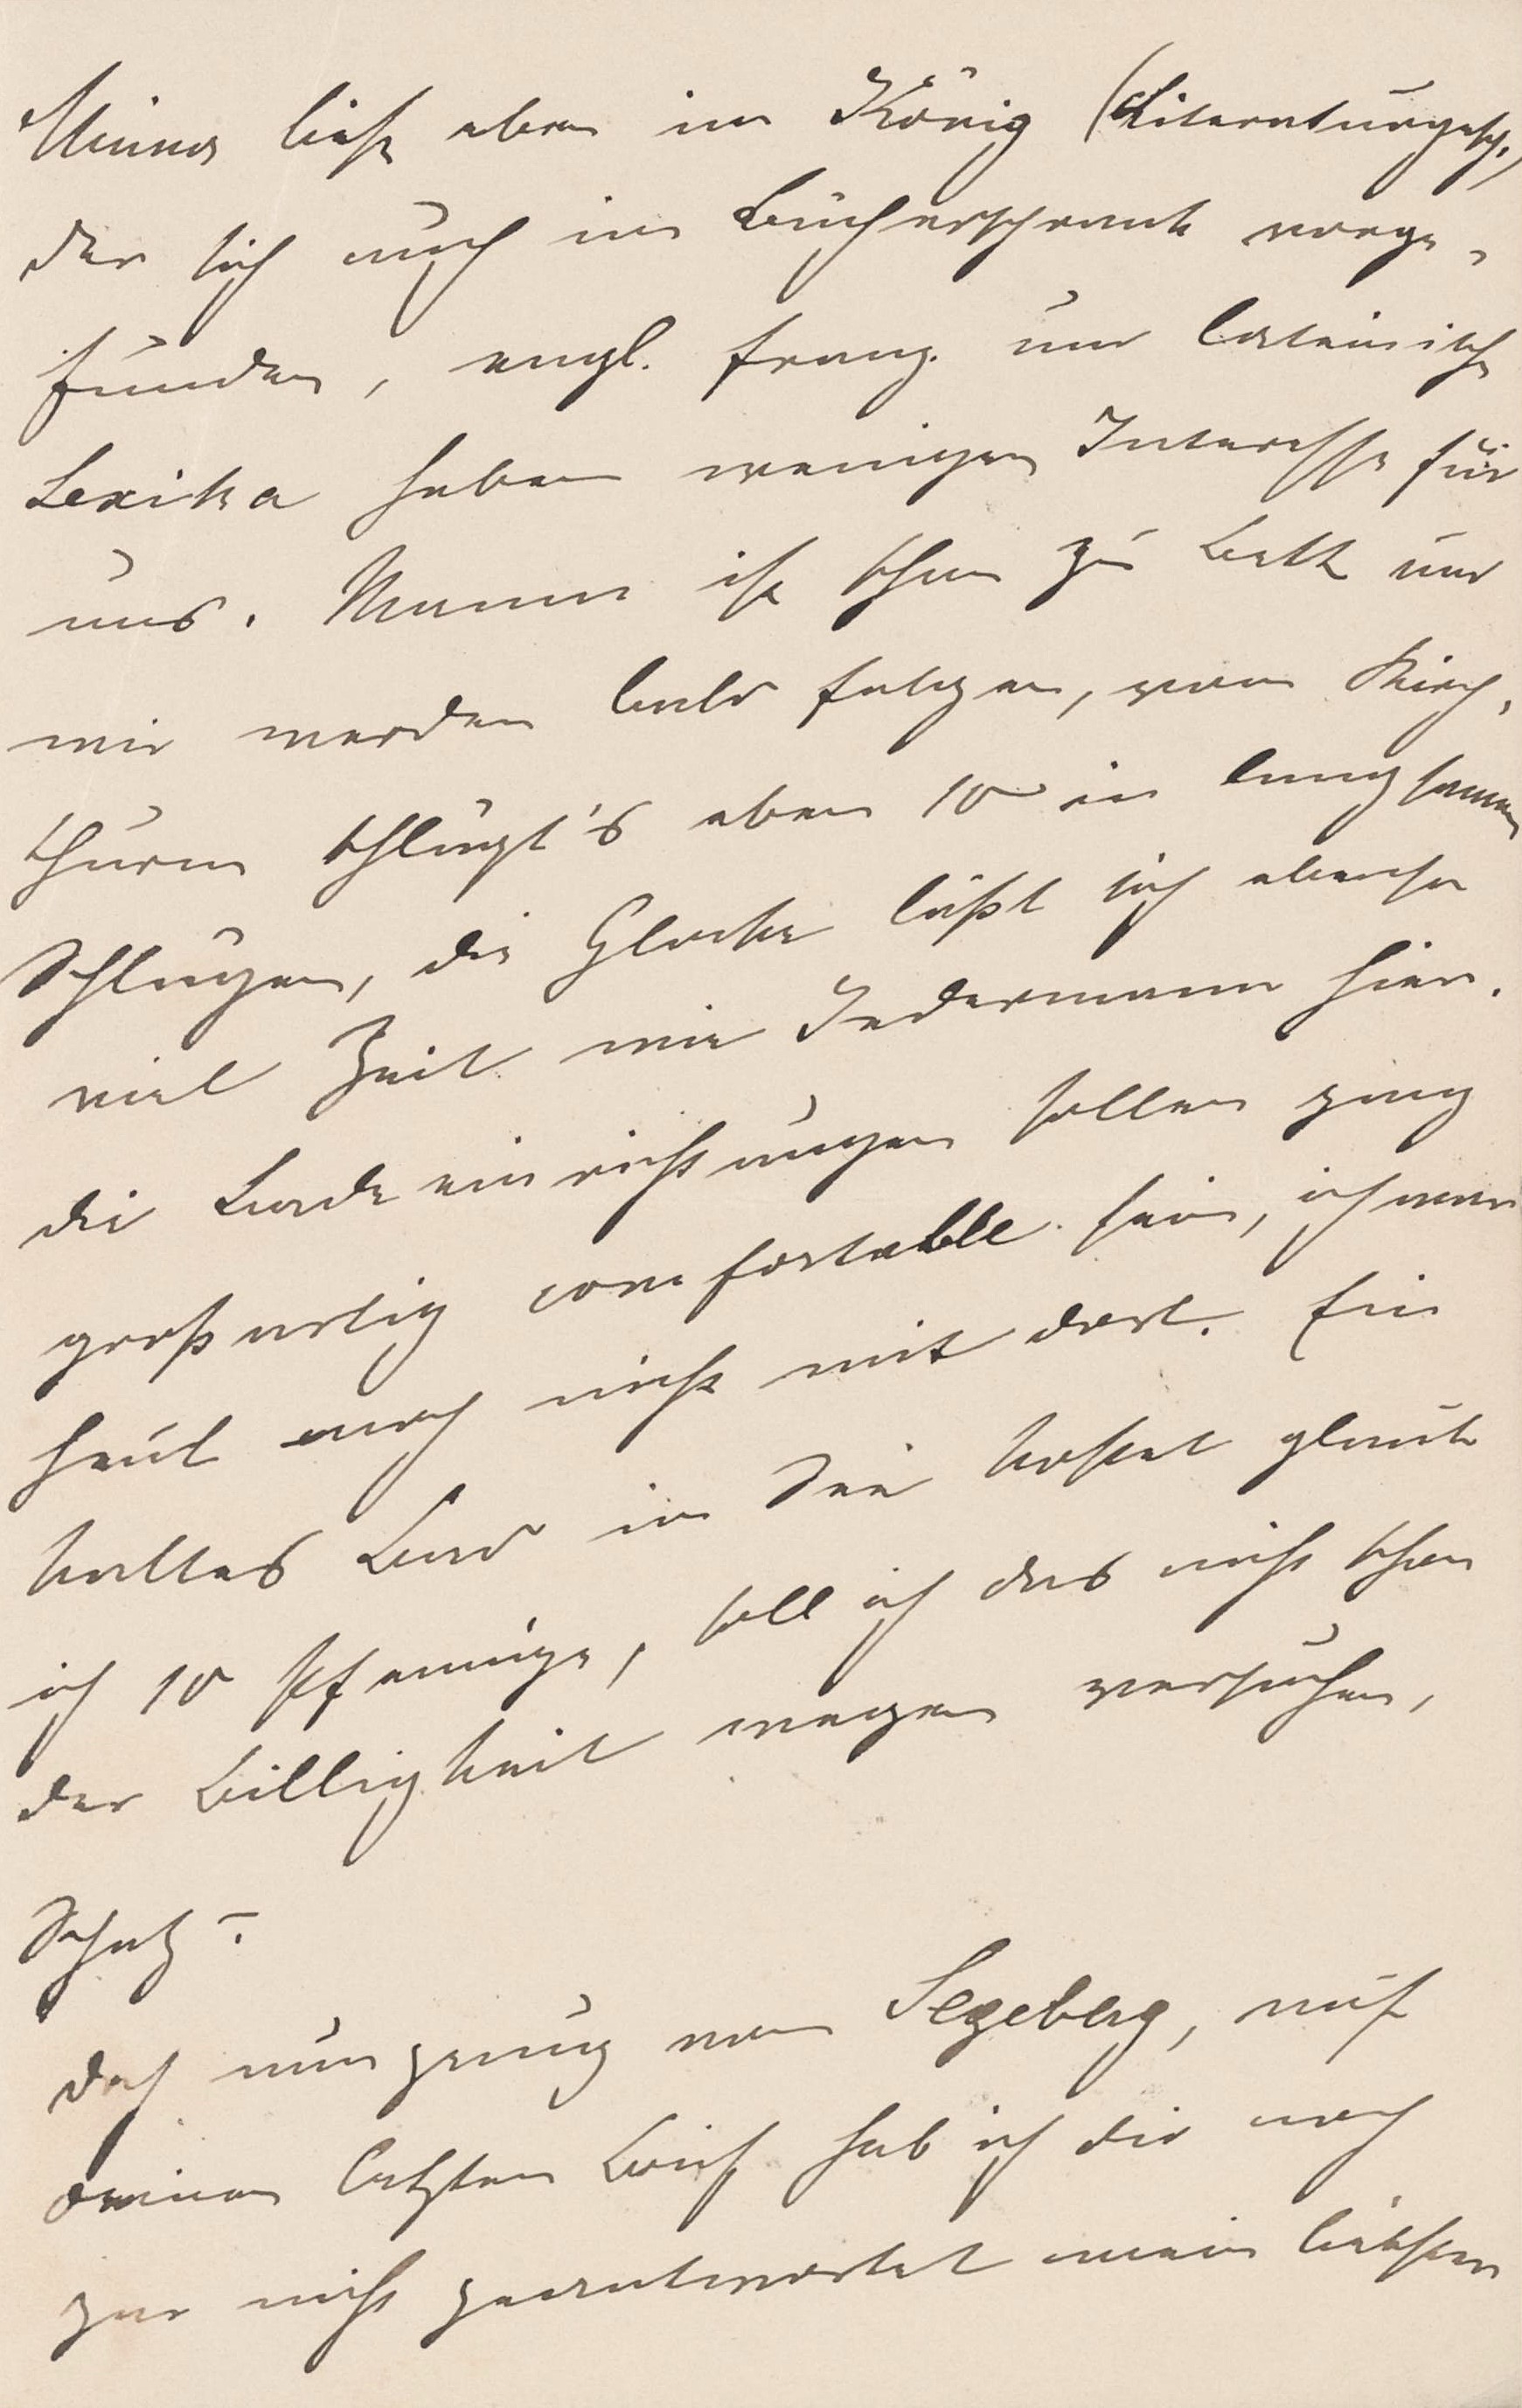 Minna ließt eben im König (Literaturgesch.)
der sich auch im Bücherschrank vorge-
funden, engl. franz. und lateinische
Lexika haben weniger Interesse für
uns. Mama ist schon zu Bett und
wir werden bald folgen, vom Kirch-
thurm schlägt's eben 10 in langsamen
Schlägen, die Glocke läßt sich ebenso
viel Zeit wie Jedermann hier.
die Badeeinrichtungen sollen ganz
großartig comfortable sein, ich war
heut noch nicht mit dort. Ein
kaltes Bad im See kostet glaub
ich 10 Pfennige, soll ich das nicht schon
der Billigkeit wegen versuchen,
Schatz?
doch nun genug von Segeberg, auf
deinen letzten Brief hab ich dir noch
gar nicht geantwortet mein liebster